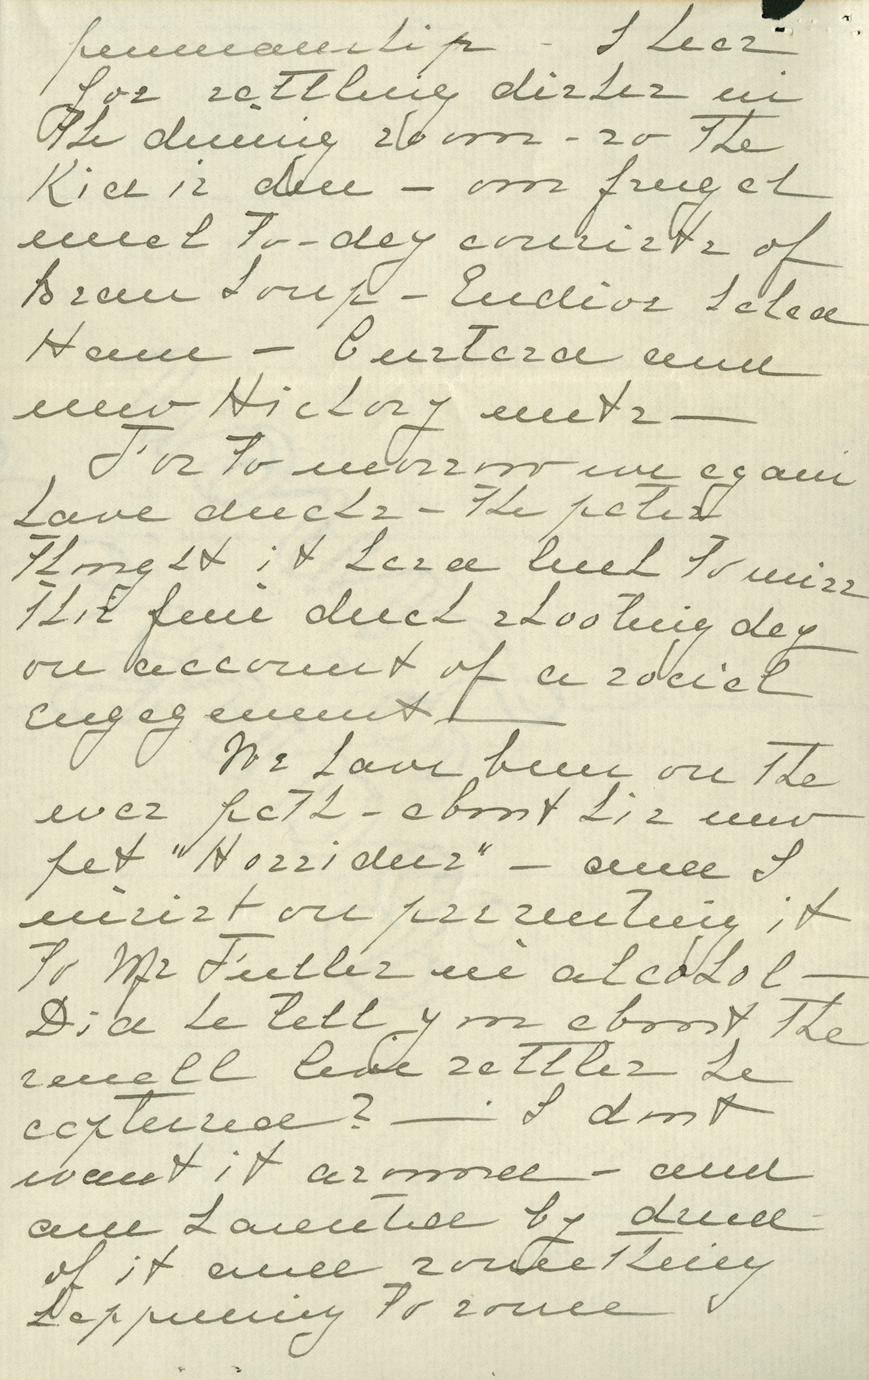 penmanship - I hear
for rattling dishes in
the dining room - so the
Kid is due - our frugal
meal To-day consists of
Bean Soup - Endive Salad
Ham - Custard and
new Hickory nuts -
For To morrow we again
have ducks - The pater
Thought it hard luck To miss
This fine duck shooting day
on account of a social
engagement
We have been on The
war path - about his new
pet "Horridus" - and I
insist on presenting it
To Mr Fuller in alcohol -
Did he tell you about The
small live rattler he
captured? - I dont
want it around - and
am haunted by dread
of it and something
happening To some